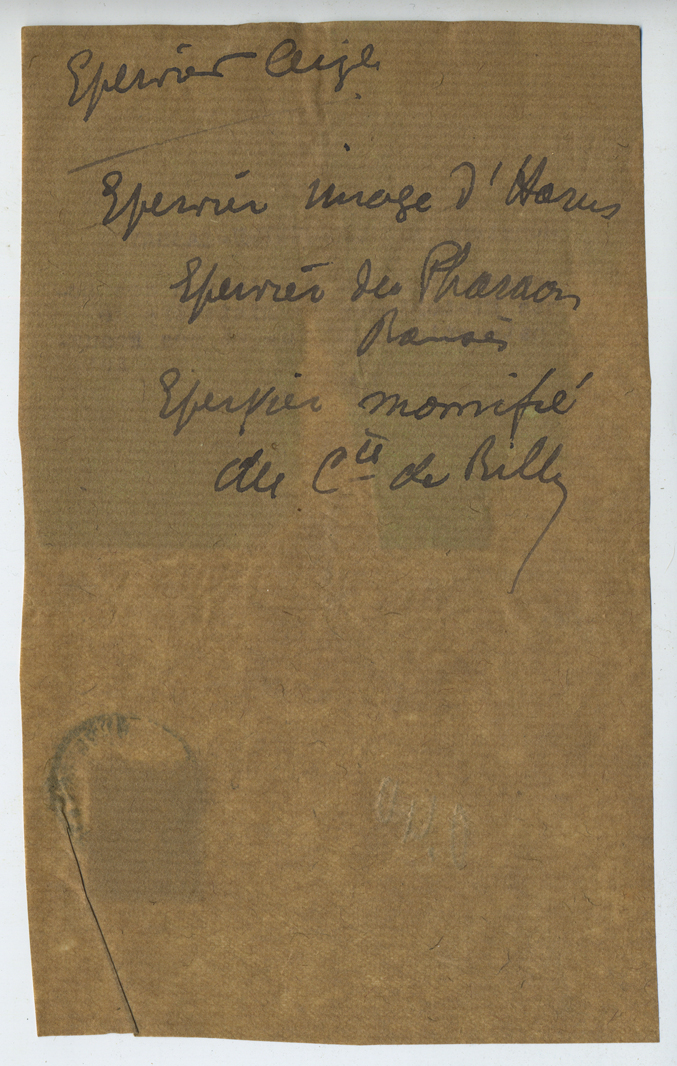 Epervier Aigle
Epervier image d'Horus
Epervier du Pharaon
Ramsès
Epervier momifié
du Cte de Billy